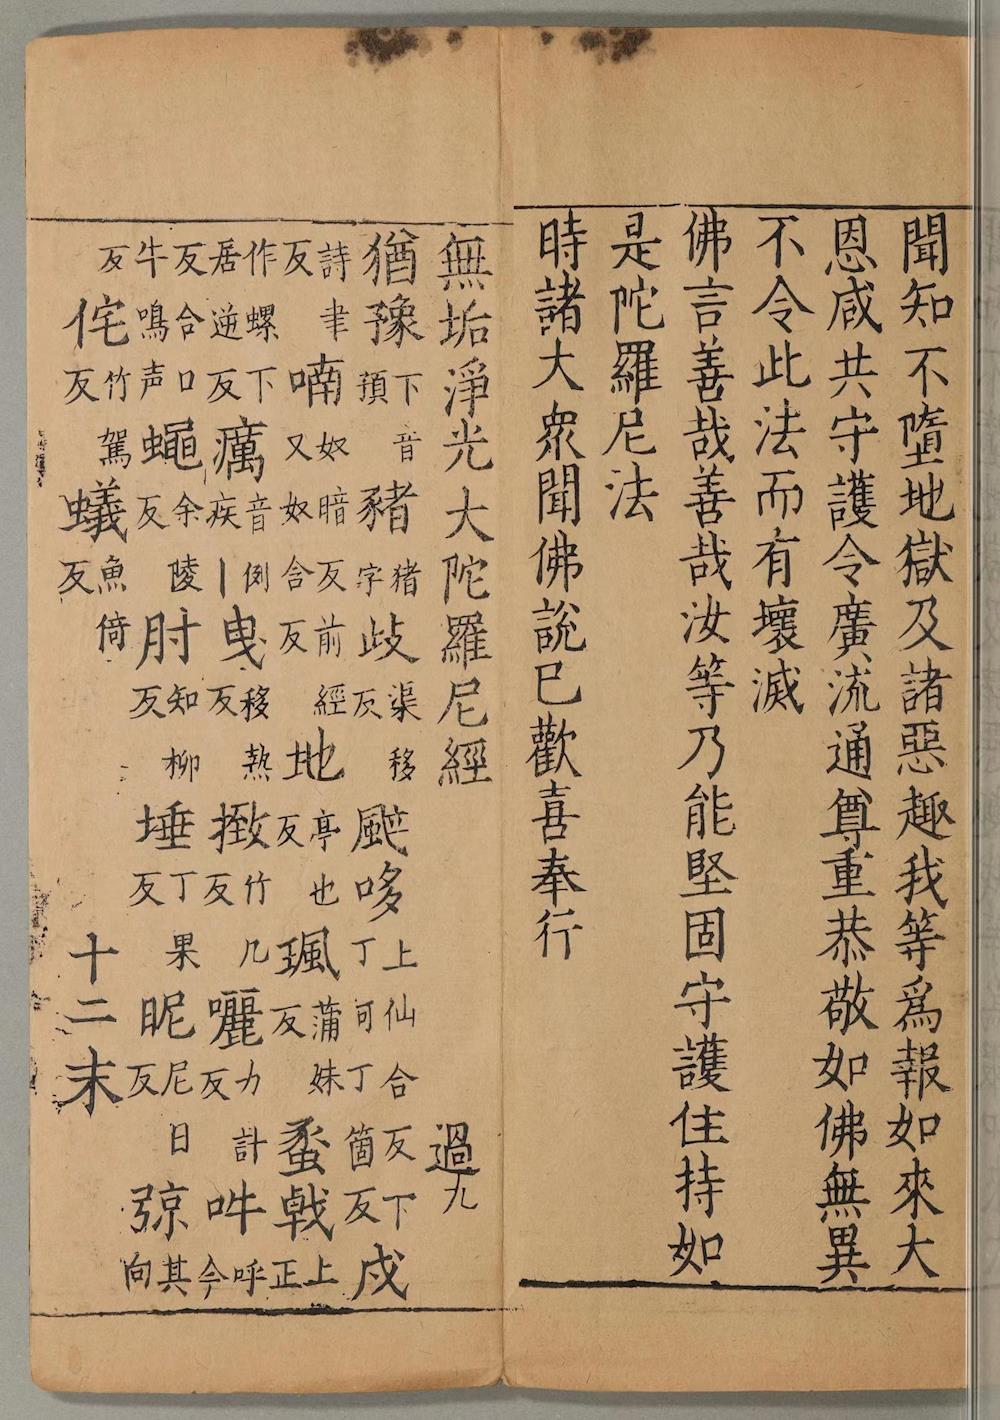 聞知不墮地獄及諸惡趣我等爲報如來大
恩咸共守護令廣流通尊重恭敬如佛無異
不令此法而有壞滅
佛言善哉善哉汝等乃能堅固守護住持如
是陀羅尼法
時諸大衆聞佛說已歡喜奉行
無垢淨光大陀羅尼經 過九
猶豫下音預豬猪字歧渠移反颯哆上仙合反下丁可丁箇反戍
詩聿反喃奴暗反前經又奴合反地亭也反珮蒲妹反戟上正
作螺下居逆反癘音例疾丨曳移熱反㨖竹几反囇力計反吽呼今
反合口牛鳴声蠅余陵反肘知柳反埵丁果反昵尼日反弶其向
反侘竹駕反蟻魚倚反 十二末